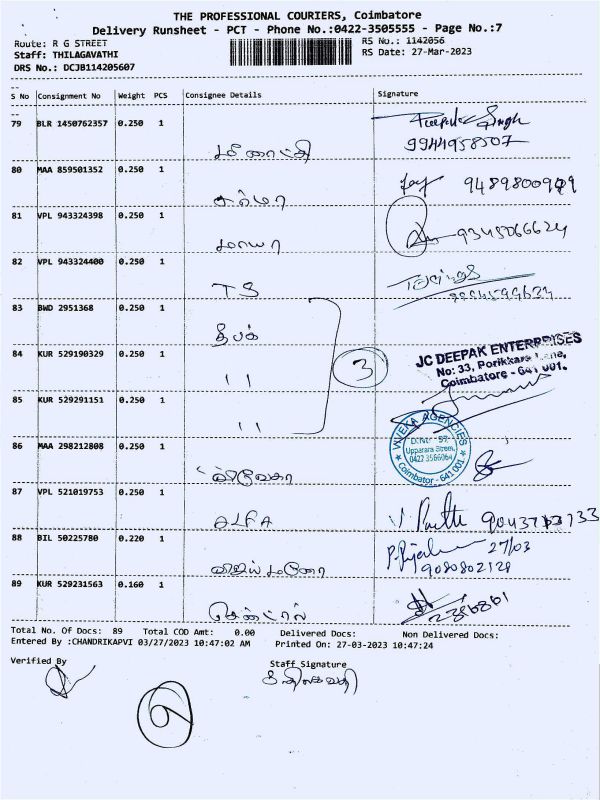 THE PROFESSIONAL COURIERS, Coimbatore
Delivery Runsheet - PCT - Phone No.:0422-3505555 - Page No.:7
Route: R G STREET
RS No.: 1142056
Staff: THILAGAVATHI
RS Date: 27-Mar-2023
DRS No.: DCJB114205607
S No Consignment No Weight PCS Consignee Details Signature
79 BLR 1450762357 0.250 1
9944958507
மீனாட்சி
80 MAA 859501352 0.250 1
சர்மா
81 VPL 943324398 0.250 1
9345066624
மாயா
82 VPL 943324400 0.250 1
TS
83 BWD 2951368 0.250 1
தீபக்
84 KUR 529190329 0.250 1
" 3
JC DEEPAK ENTERPRISES
No: 33, Porikkara Lane,
Coimbatore - 641 001.
85 KUR 529291151 0.250 1
"
86 MAA 298212808 0.250 1
VIVEKA AGENCIES
Upparara Street,
0422 3566064
Coimbator - 641 001
விவேகா
87 VPL 521019753 0.250 1
ALFA
88 BIL 50225780 0.220 1
27/03
9080802128
89 KUR 529231563 0.160 1
சென்ட்ரல்
2386801
Total No. Of Docs: 89 Total COD Amt: 0.00 Delivered Docs: Non Delivered Docs:
Entered By :CHANDRIKAPVI 03/27/2023 10:47:02 AM Printed On: 27-03-2023 10:47:24
Verified By Staff Signature